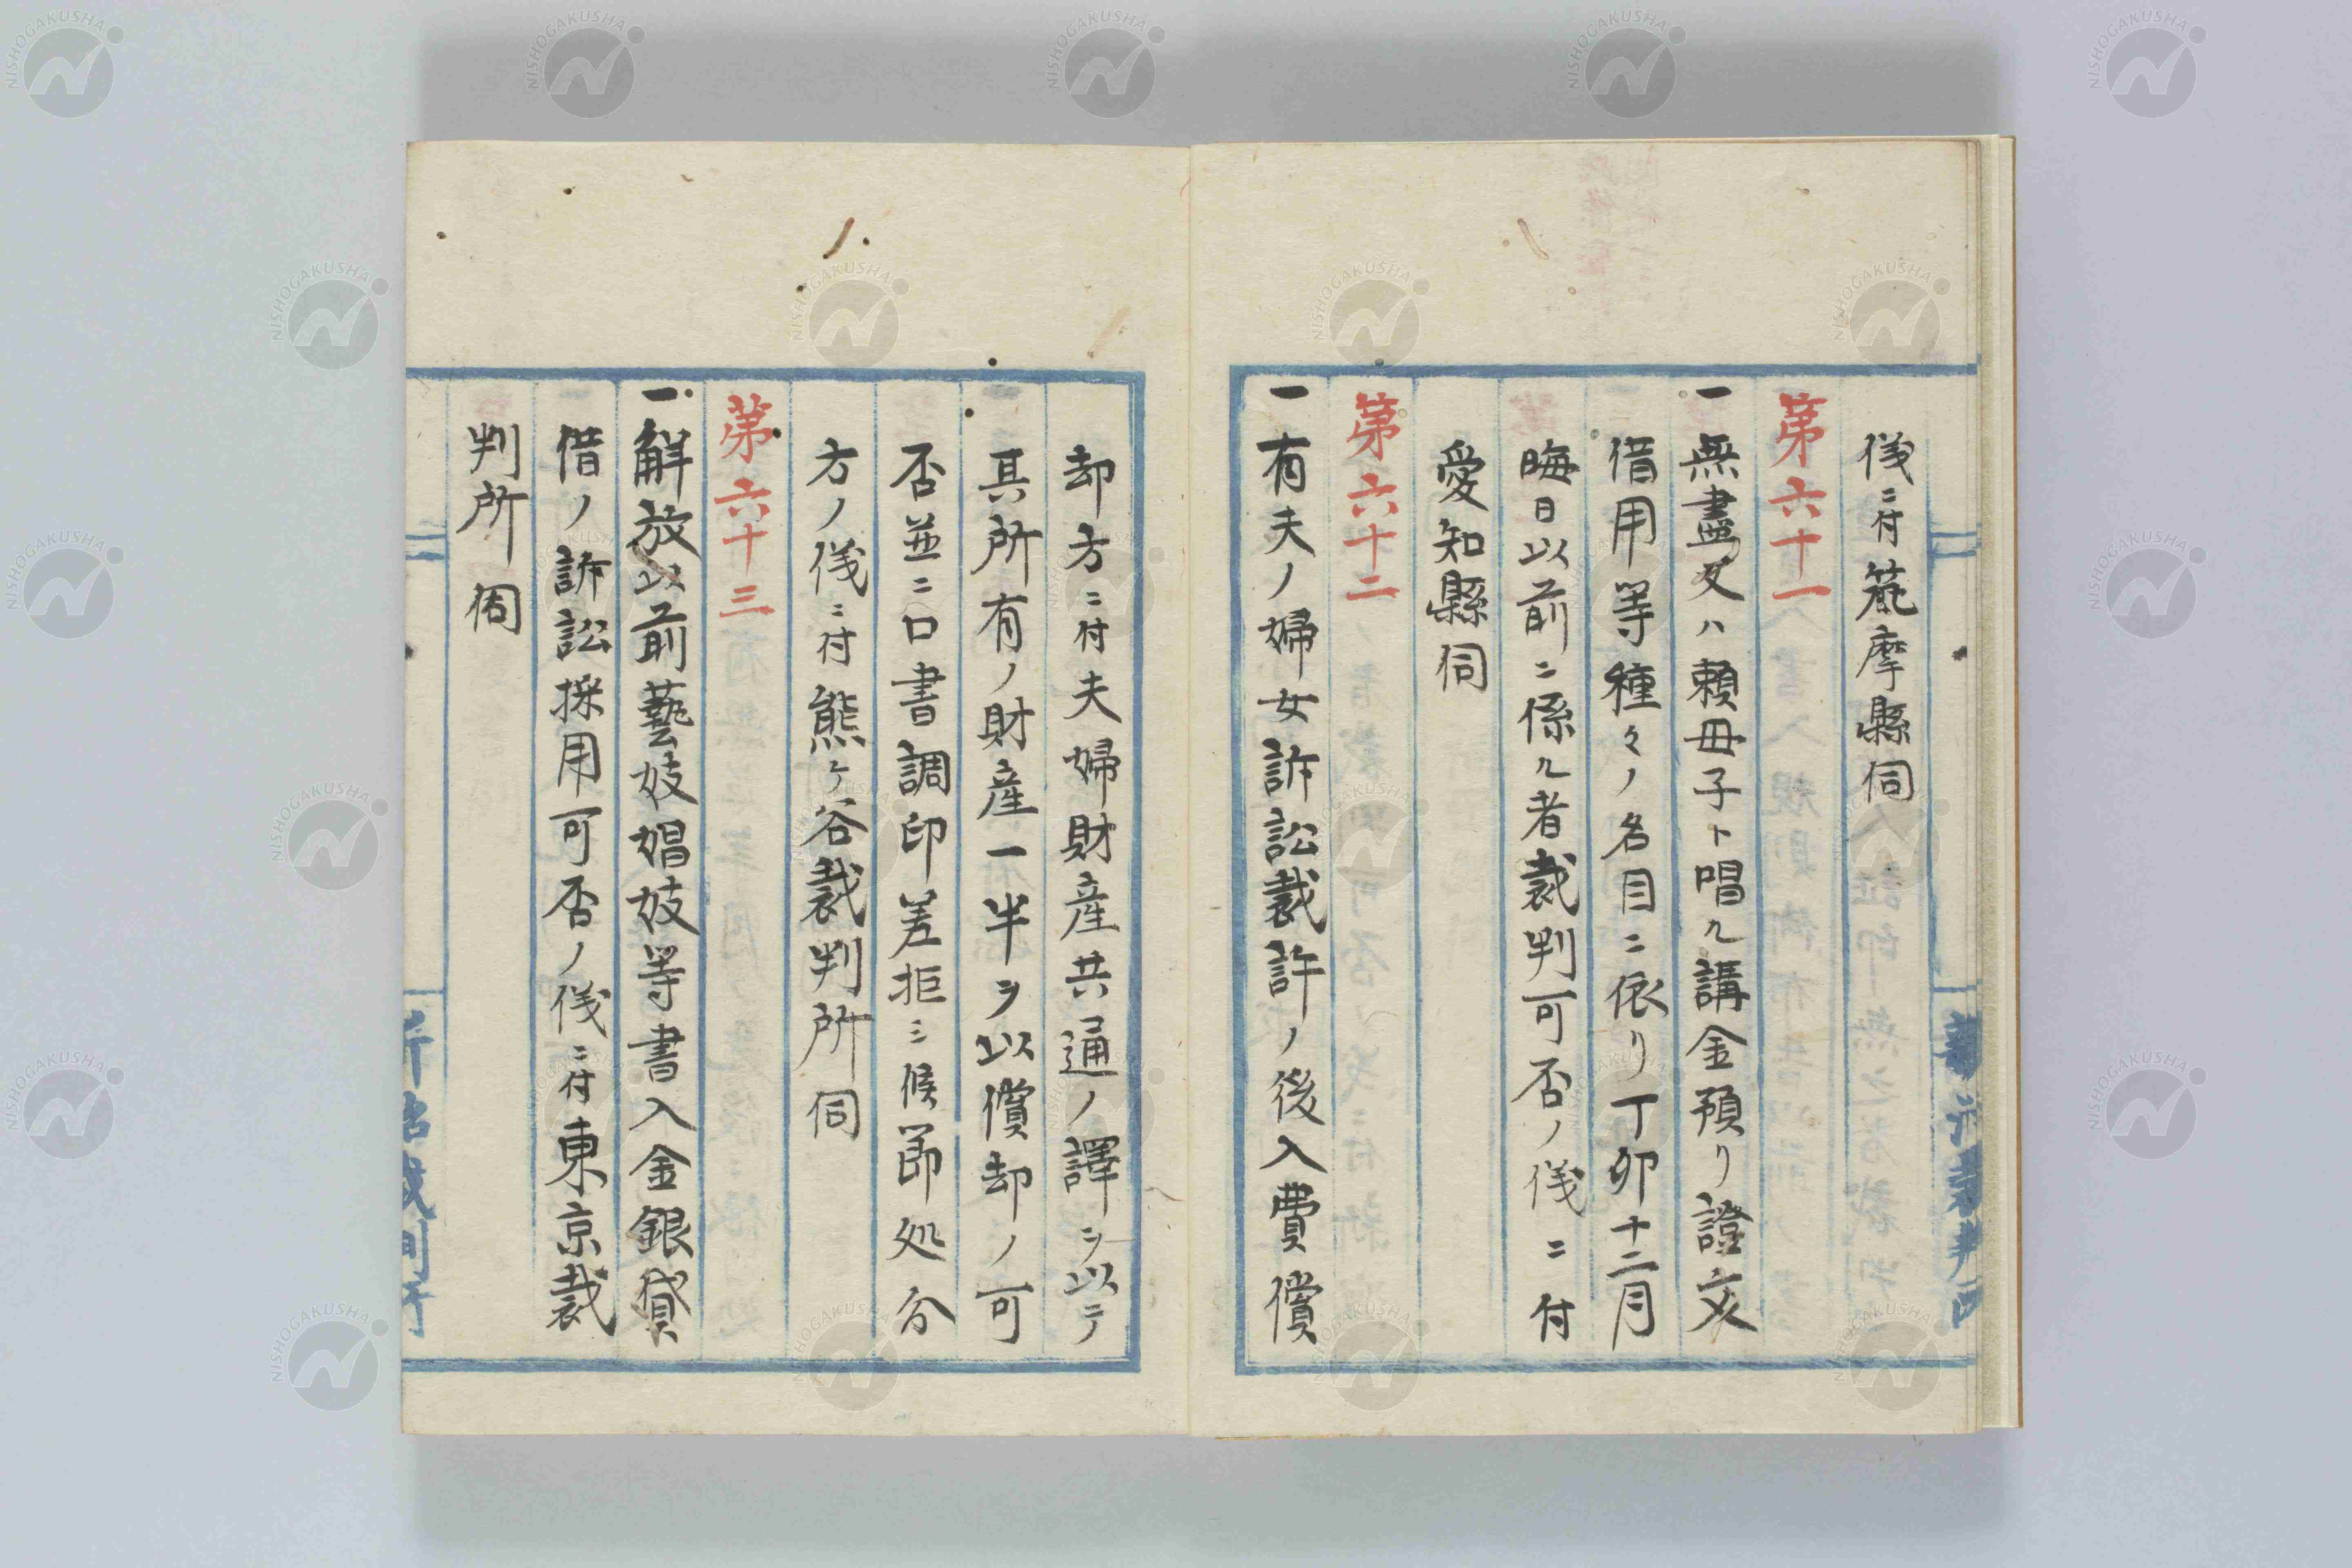 儀ニ付筑摩縣伺
第六十一
一無盡又ハ頼母子ト唱ル講金預リ證文
借用等種々ノ名目ニ依リ丁卯十二月
晦日以前ニ係ル者裁判可否ノ儀ニ付
愛知縣伺
第六十二
一有夫ノ婦女訴訟裁許ノ後入費償
却方ニ付夫婦財産共通ノ譯ヲ以テ
其所有ノ財産一半ヲ以償却ノ可
否並ニ口書調印差拒ミ候節処分
方ノ儀ニ付熊ヶ谷裁判所伺
第六十三
一解放以前藝妓娼妓等書入金銀貸
借ノ訴訟採用可否ノ儀ニ付東京裁
判所伺
NISHOGAKUSHA